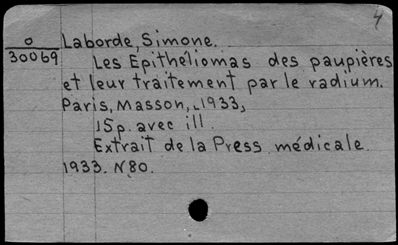 4
O
30069
Laborde, Simone.
Les Epithéliomas des paupières
et leur traitement par le radium.
Paris, Masson, 1933,
15p. avec ill.
Extrait de la Press médicale.
1933. N80.